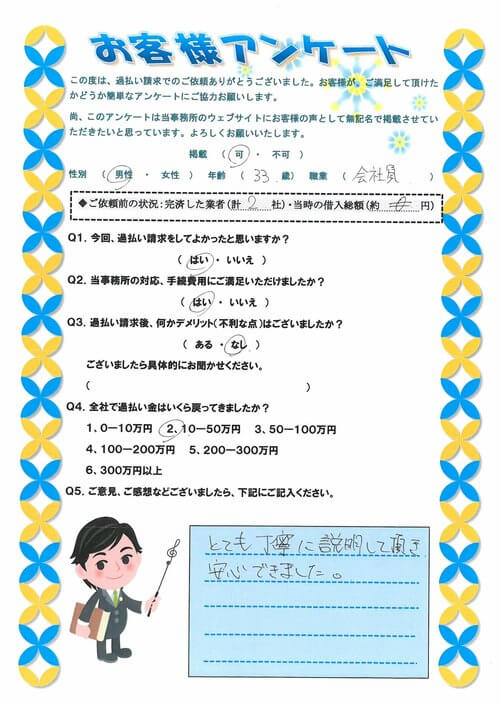 お客様アンケート
この度は、過払い請求でのご依頼ありがとうございました。お客様が、ご満足して頂けた
かどうか簡単なアンケートにご協力お願いします。
尚、このアンケートは当事務所のウェブサイトにお客様の声として無記名で掲載させてい
ただきたいと思っています。よろしくお願いいたします。
掲載 （ 可 ・ 不可 ）
性別 （ 男性 ・ 女性 ） 年齢 （ 33 歳） 職業 （ 会社員 ）
◆ご依頼前の状況：完済した業者（計 2 社）・当時の借入総額（約 円）
Q1. 今回、過払い請求をしてよかったと思いますか？
（ はい ・ いいえ ）
Q2. 当事務所の対応、手続費用にご満足いただけましたか？
（ はい ・ いいえ ）
Q3. 過払い請求後、何かデメリット（不利な点）はございましたか？
（ ある ・ なし ）
ございましたら具体的にお聞かせください。
（ ）
Q4. 全社で過払い金はいくら戻ってきましたか？
1、0－10万円 2、10－50万円 3、50－100万円
4、100－200万円 5、200－300万円
6、300万円以上
Q5. ご意見、ご感想などございましたら、下記にご記入ください。
とても丁寧に説明して頂き
安心できました。